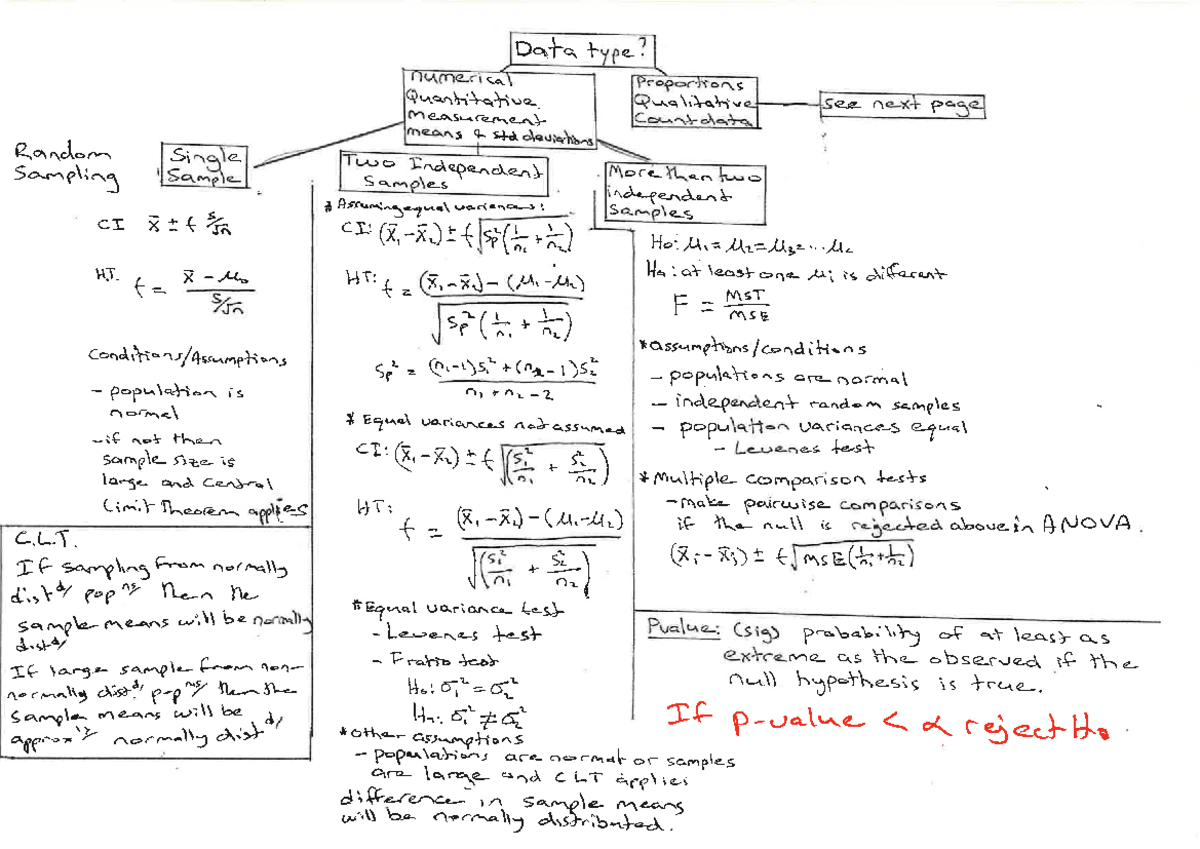 Data type?
numerical
Quantitative
measurement
means & std deviations
Proportions
Qualitative
Count data
see next page
Random
Sampling
Single
Sample
CI x̄ ± t s/√n
HT. t = (x̄ - μ₀)/(s/√n)
Conditions/Assumptions
- population is
normal
- if not then
sample size is
large and Central
Limit Theorem applies
C.L.T.
If sampling from normally
distᵈ/ popⁿˢ/ then the
sample means will be normally
distᵈ/
If large sample from non-
normally dist.ᵈ/ popⁿˢ/ then the
sample means will be
approxˡʸ/ normally distᵈ/
Two Independent
Samples
* Assuming equal variances:
CI: (x̄₁-x̄₂) ± t√(Sp²(1/n₁ + 1/n₂))
HT: t = ((x̄₁-x̄₂) - (μ₁-μ₂))/√(Sp²(1/n₁ + 1/n₂))
Sp² = ((n₁-1)S₁² + (n₂-1)S₂²)/(n₁+n₂-2)
* Equal variances not assumed
CI: (x̄₁-x̄₂) ± t√(S₁²/n₁ + S₂²/n₂)
HT: t = ((x̄₁-x̄₂) - (μ₁-μ₂))/√(S₁²/n₁ + S₂²/n₂)
* Equal variance test
- Levenes test
- F ratio test
H₀: σ₁² = σ₂²
Hₐ: σ₁² ≠ σ₂²
* other assumptions
- populations are normal or samples
are large and CLT applies
difference in sample means
will be normally distributed.
More than two
independent
samples
H₀: μ₁ = μ₂ = μ₃ = ... μₖ
Hₐ: at least one μᵢ is different
F = MST/MSE
* assumptions/conditions
- populations are normal
- independent random samples
- population variances equal
- Levenes test
* Multiple comparison tests
- make pairwise comparisons
if the null is rejected above in ANOVA.
(x̄ᵢ - x̄ⱼ) ± t√(MSE(1/nᵢ + 1/nⱼ))
Pvalue: (sig) probability of at least as
extreme as the observed if the
null hypothesis is true.
If p-value < α reject H₀